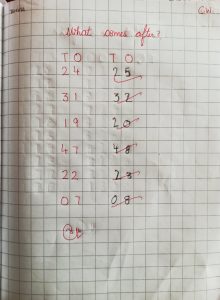 C.W.
What comes after?
T O T O
24 25
31 32
19 20
47 48
22 23
07 08